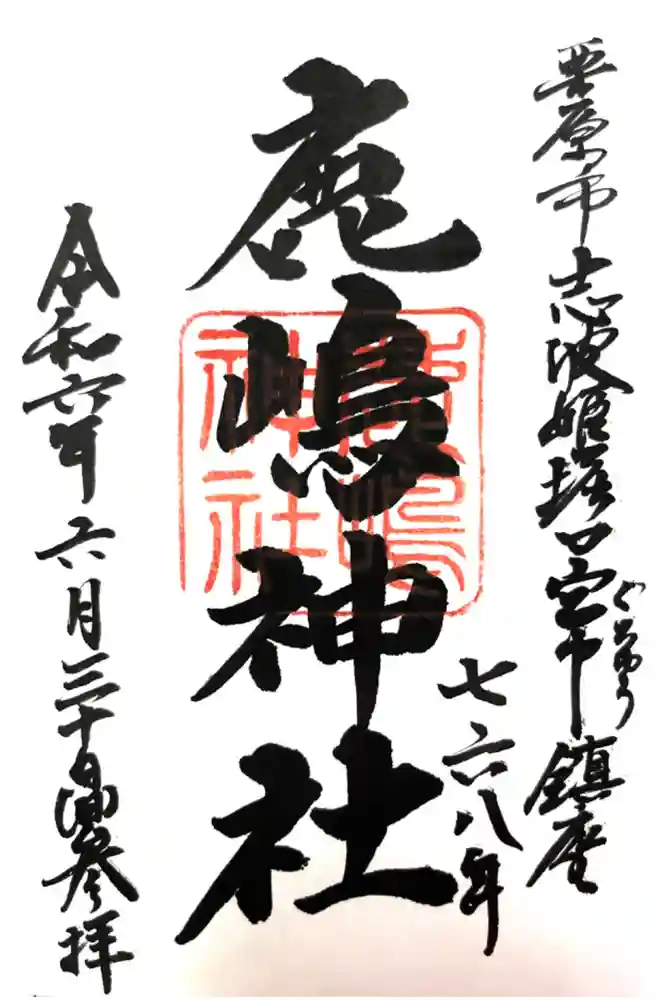 栗原市志波姫堀口宮中鎮座
七六八年
鹿嶋神社
鹿嶋
神社
令和六年六月三十日参拝